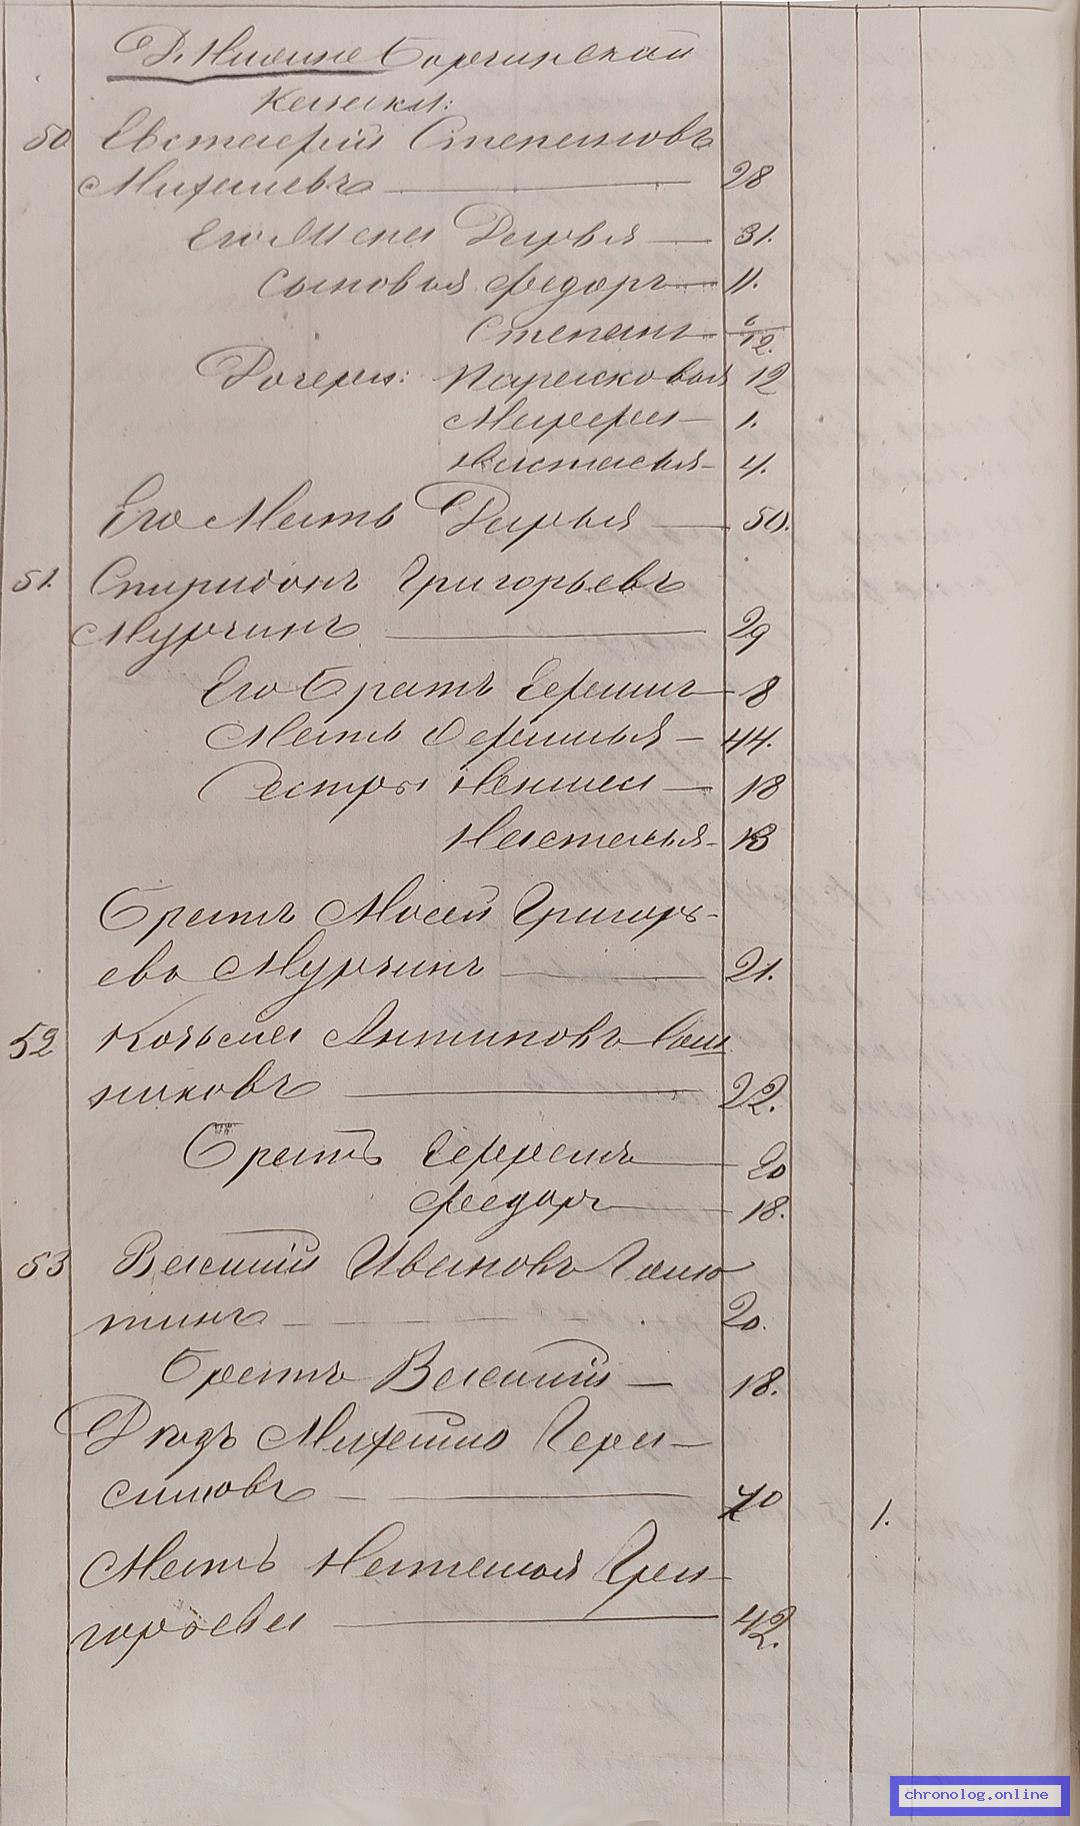 Д. Нижне Борчинской
50 Евстафій Степановъ
Михалевъ — 28
Его Жена Дарья — 31.
Сыновья Федоръ — 11.
Степанъ —
Дочери: Парасковья 12
Марфа — 1.
Настасья — 4.
Его Мать Дарья — 50.
51. Спиридонъ Григорьевъ
Мурчинъ — 29
Его Братъ Ефимъ — 8
Мать — 44.
Сестры — 18
Настасья — 13
Братъ Мосей Григорь-
ево Мурчинъ — 21.
52 Козьма Антиповъ
никовъ — 22.
Братъ — 20
Федоръ — 18.
53 Василій Ивановъ Галю
тинъ — 20.
Братъ Василій — 18.
Дядя Михайло Гера-
симовъ — 40 1.
Мать Наталья Гри-
горьева — 42.
chronolog.online